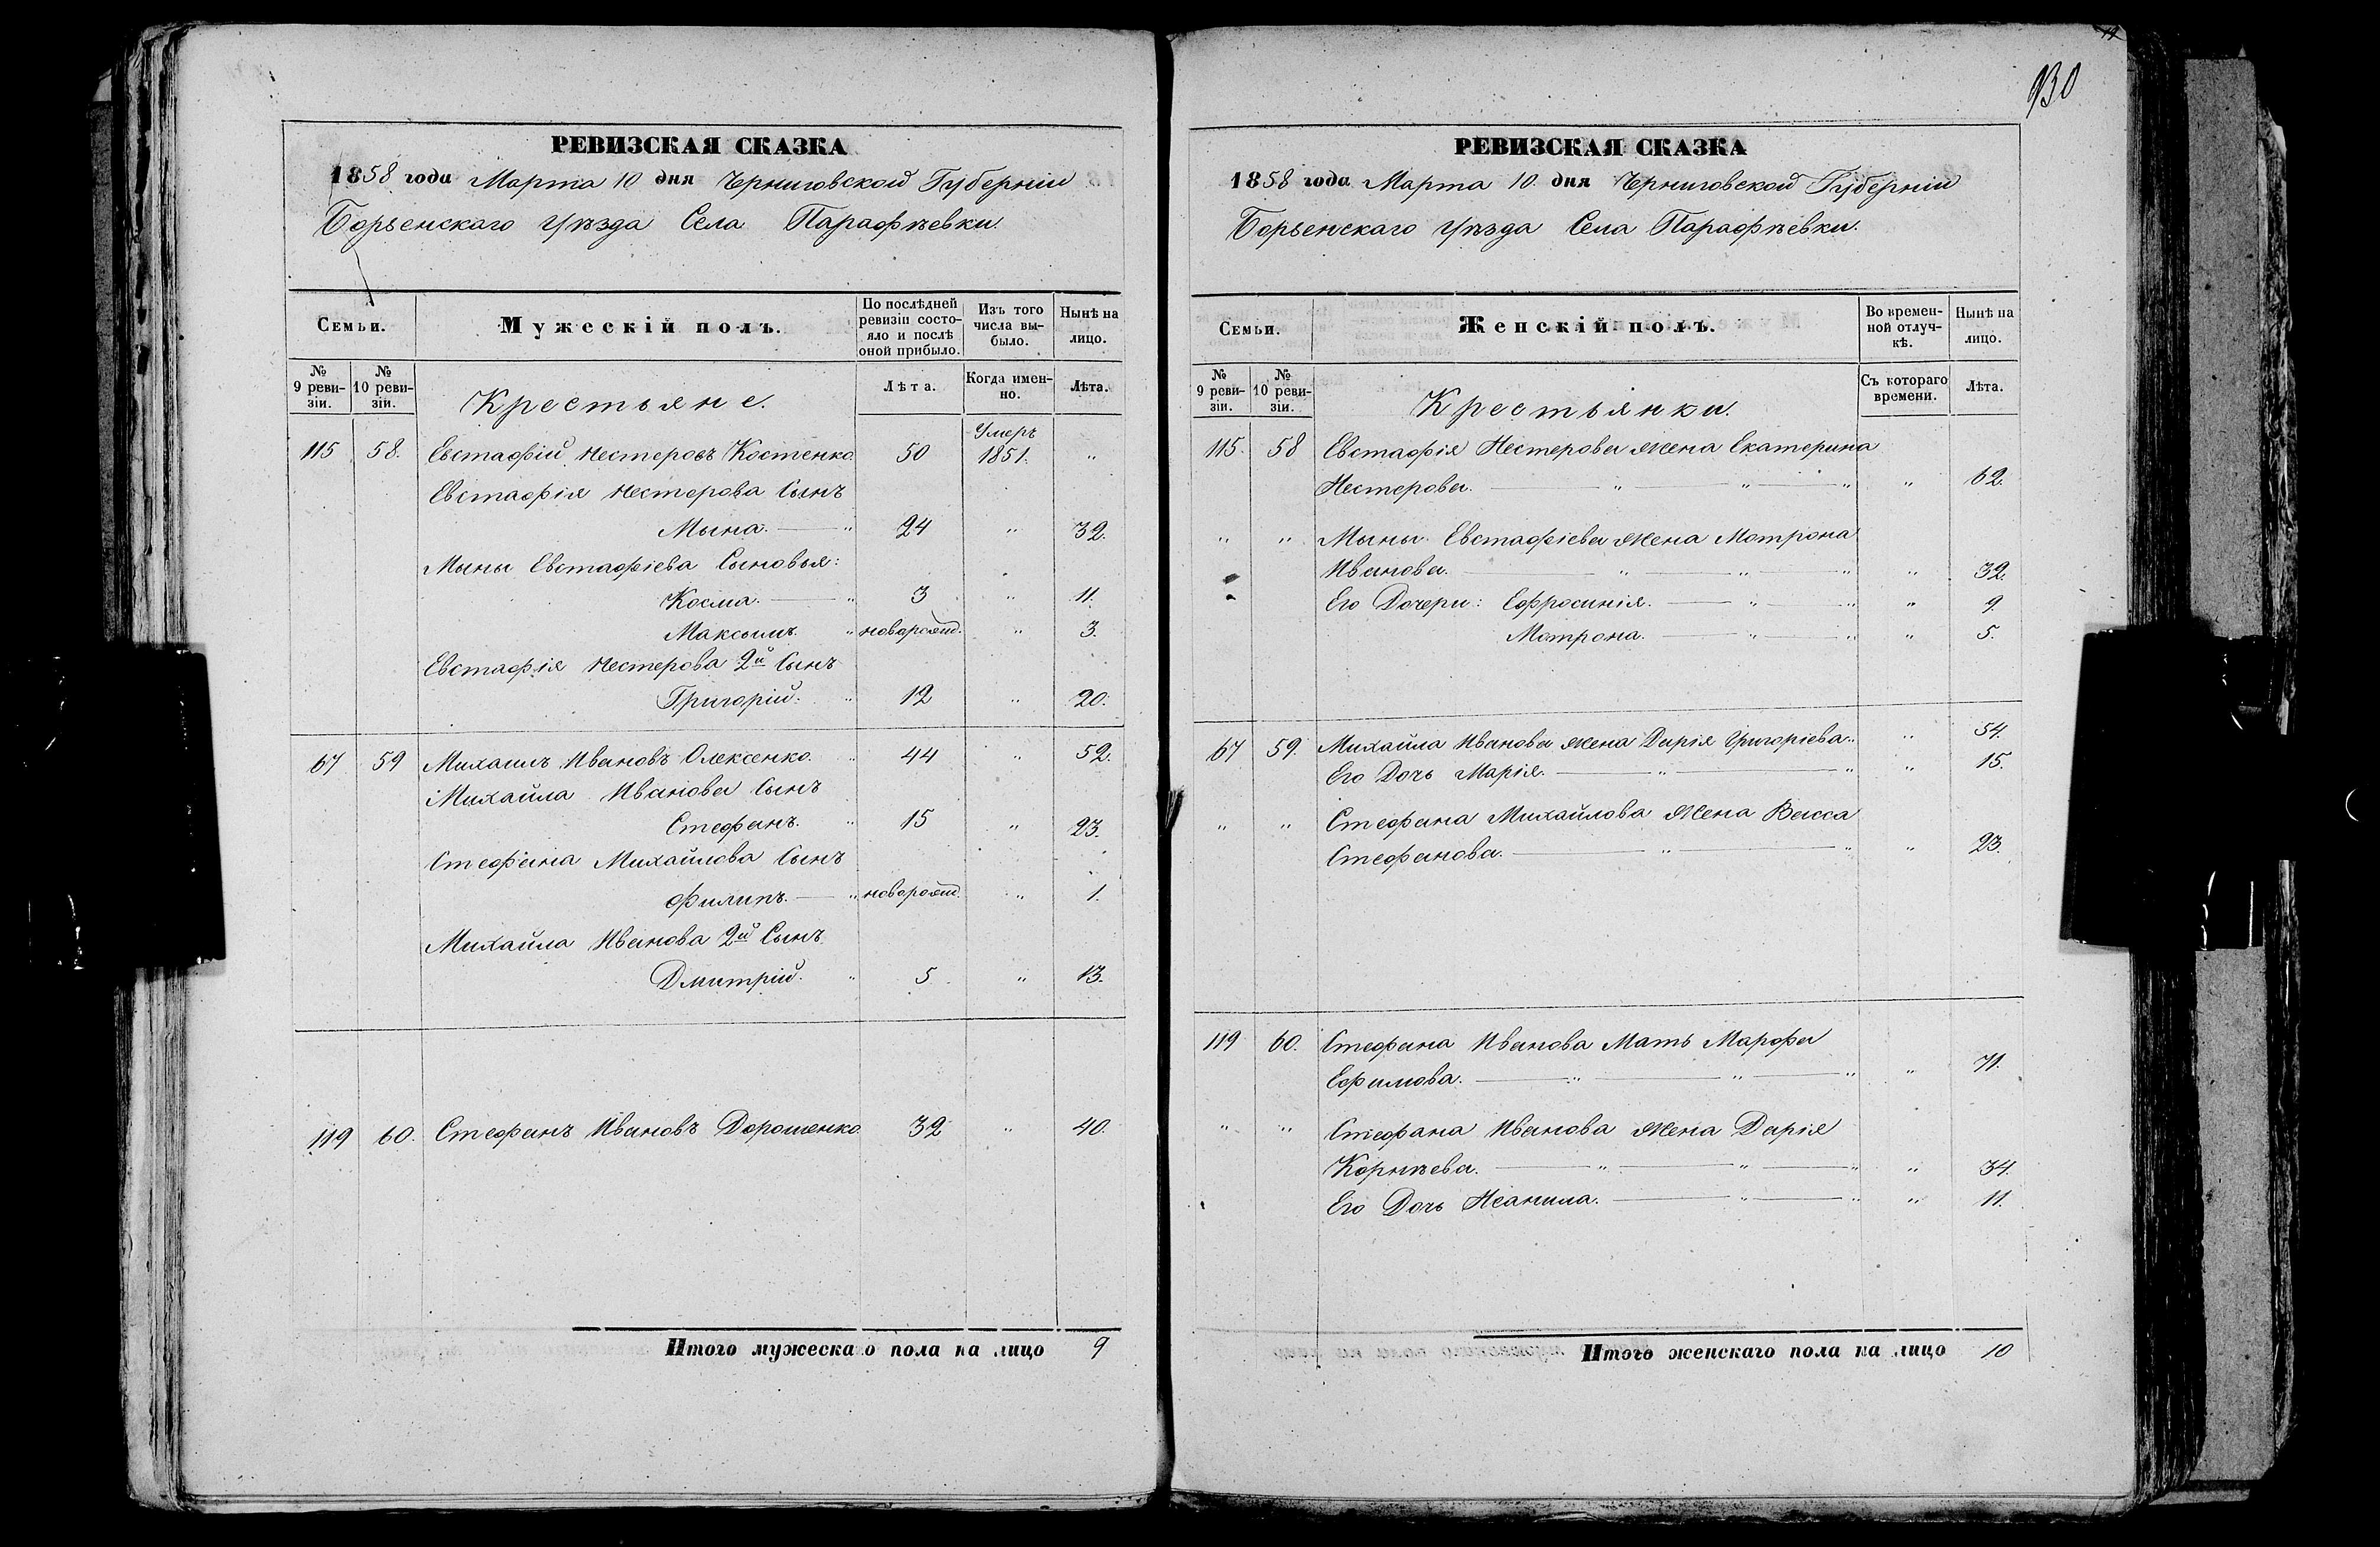 РЕВИЗСКАЯ СКАЗКА
1858 года Марта 10 дня Черниговской Губерніи
Борзенскаго Уѣзда Села Парафѣевки.
Семьи. Мужескій полъ. По послѣдней ревизіи состояло и послѣ оной прибыло. Изъ того числа выбыло. Нынѣ на лицо.
№ 9 ревизіи. № 10 ревизіи. Крестьяне. Лѣта. Когда именно. Лѣта.
115 58. Евстафій Нестеровъ Костенко. 50 Умеръ 1851. "
Евстафія Нестерова Сынъ
Мына. " 24 " 32.
Мыны Евстафіева Сыновья:
Косма. " 3 " 11.
Максимъ. " новорожд. " 3.
Евстафія Нестерова 2й Сынъ
Григорій. " 12 " 20.
67 59 Михаилъ Ивановъ Олексенко. " 44 " 52.
Михайла Иванова Сынъ
Стефанъ. " 15 " 23.
Стефана Михайлова Сынъ
Филипъ. " новорожд. " 1.
Михайла Иванова 2й Сынъ
Дмитрій. " 5 " 13.
119 60. Стефанъ Ивановъ Дорошенко. 32 " 40.
Итого мужескаго пола на лицо 9
930
РЕВИЗСКАЯ СКАЗКА
1858 года Марта 10 дня Черниговской Губерніи
Борзенскаго Уѣзда Села Парафѣевки.
Семьи. Женскій полъ. Во временной отлучкѣ. Нынѣ на лицо.
№ 9 ревизіи. № 10 ревизіи. Крестьянки. Съ котораго времени. Лѣта.
115. 58 Евстафія Нестерова жена Екатерина
Нестерова. " " " " 62.
" " Мыны Евстафіева жена Мотрона
Иванова. " " " " 32.
Его Дочери: Ефросинія. " " " 9.
Мотрона. " " " 5.
67 59. Михайла Иванова жена Дарія Григоріева. " " 54.
Его Дочь Марія. " " " 15.
" " Стефана Михайлова жена Васса
Стефанова. " " " 23.
119 60. Стефана Иванова Мать Марфа
Ефимова. " " " " 71.
" " Стефана Иванова жена Дарія
Корнѣева. " " " " 34.
Его Дочь Неанила. " " " 11.
Итого женскаго пола на лицо 10